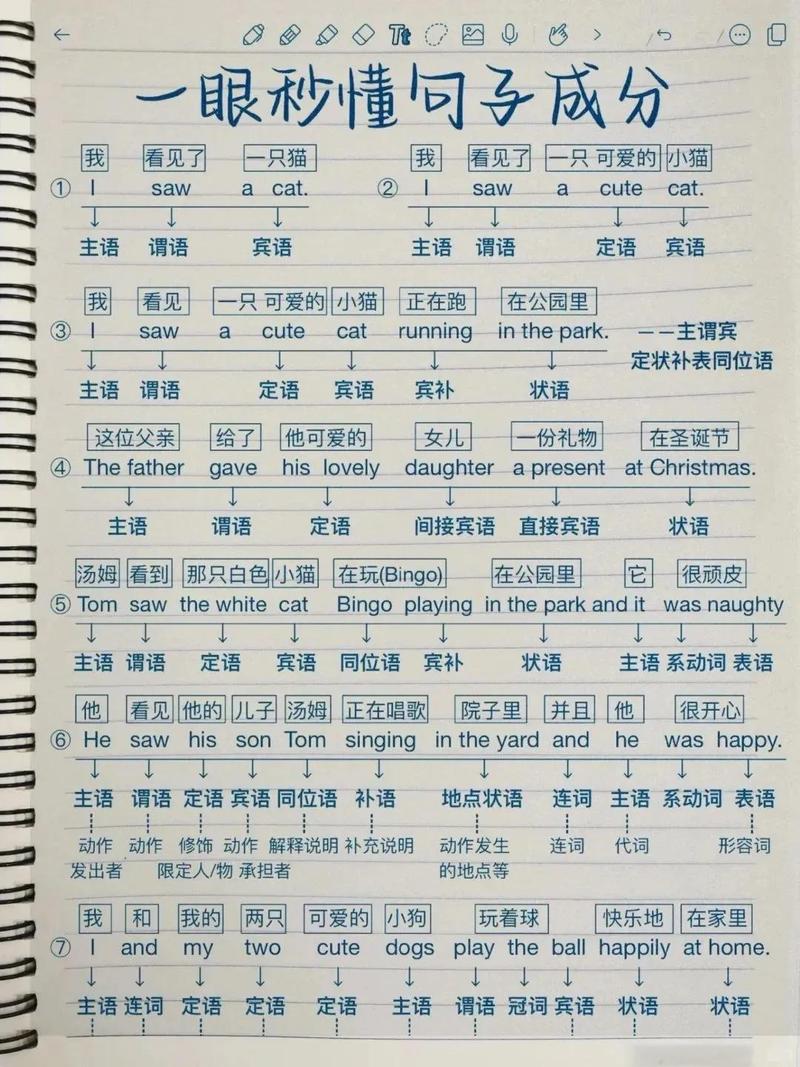 Tt
一眼秒懂句子成分
我 看见了 一只猫 我 看见了 一只 可爱的 小猫
① I saw a cat. ② I saw a cute cat.
主语 谓语 宾语 主语 谓语 定语 宾语
我 看见 一只 可爱的 小猫 正在跑 在公园里
③ I saw a cute cat running in the park. ——主谓宾
定状补表同位语
主语 谓语 定语 宾语 宾补 状语
这位父亲 给了 他可爱的 女儿 一份礼物 在圣诞节
④ The father gave his lovely daughter a present at Christmas.
主语 谓语 定语 间接宾语 直接宾语 状语
汤姆 看到 那只白色 小猫 在玩(Bingo) 在公园里 它 很顽皮
⑤ Tom saw the white cat Bingo playing in the park and it was naughty
主语 谓语 定语 宾语 同位语 宾补 状语 主语 系动词 表语
他 看见 他的 儿子 汤姆 正在唱歌 院子里 并且 他 很开心
⑥ He saw his son Tom singing in the yard and he was happy.
主语 谓语 定语 宾语 同位语 补语 地点状语 连词 主语 系动词 表语
动作 动作 修饰 动作 解释说明 补充说明 动作发生 连词 代词 形容词
发出者 限定人/物 承担者 的地点等
我 和 我的 两只 可爱的 小狗 玩着球 快乐地 在家里
⑦ I and my two cute dogs play the ball happily at home.
主语 连词 定语 定语 定语 主语 谓语 冠词 宾语 状语 状语